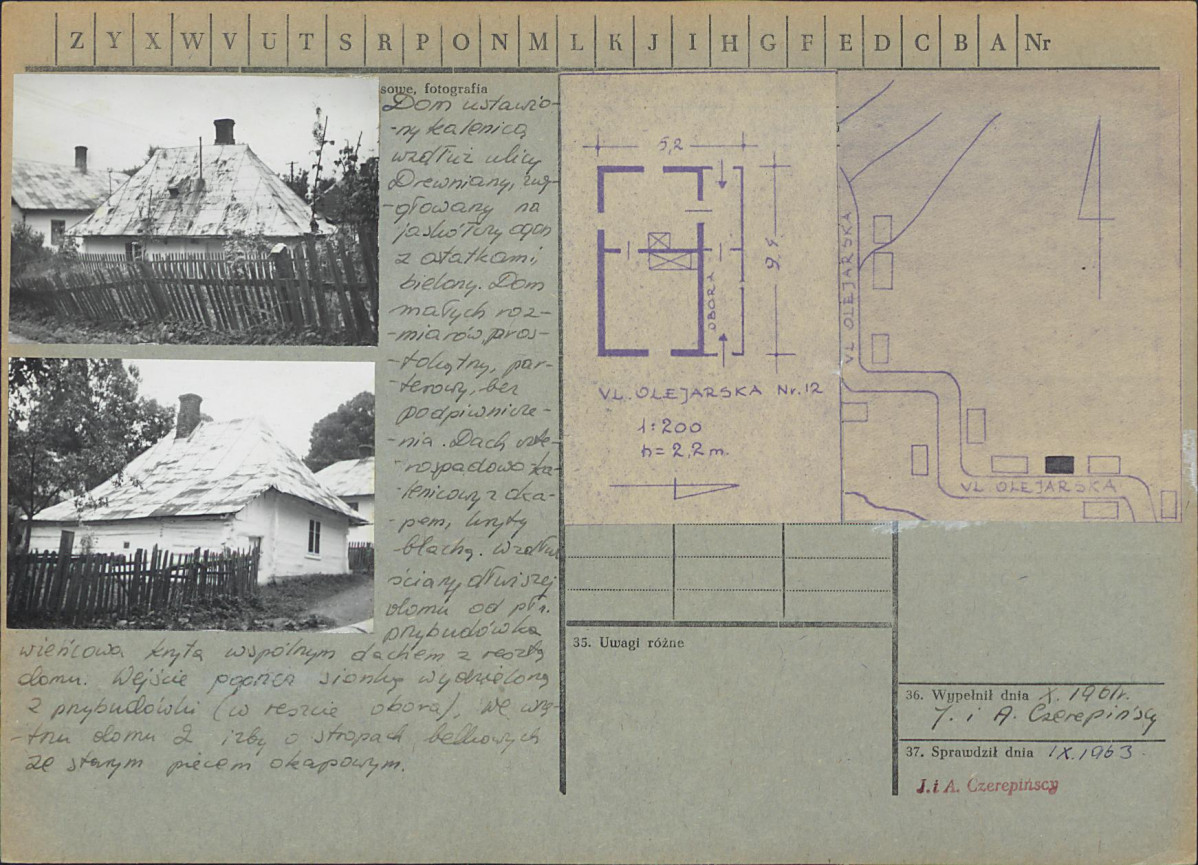 Z Y X W V U T S R P O N M L K J I H G F E D C B A Nr
sowe, fotografia
Dom ustawio-
-ny kalenicą
wzdłuż ulicy
Drewniany, zwę-
-głowany na
jaskółczy ogon
z ostatkami,
bielony. Dom
małych roz-
-miarów, pros-
-tokątny, par-
-terowy, bez
podpiwnicze-
-nia. Dach czte-
rospadowo ka-
-lenicowy z oka-
-pem, kryty
blachą. Wzdłuż
ściany dłuższej
domu od płn.
przybudówka
wieńcowa kryta wspólnym dachem z resztą
domu. Wejście poprzez sionkę wydzieloną
z przybudówki (w reszcie obora). We wnę-
-trzu domu 2 izby o stropach belkowych
ze starym piecem okapowym.
5,2
9,9
OBORA
VL. OLEJARSKA Nr. 12
1:200
h= 2,2 m.
VL. OLEJARSKA
VL. OLEJARSKA
35. Uwagi różne
36. Wypełnił dnia X. 1961r.
J. i A. Czerepińscy
37. Sprawdził dnia IX. 1963.
J. i A. Czerepińscy